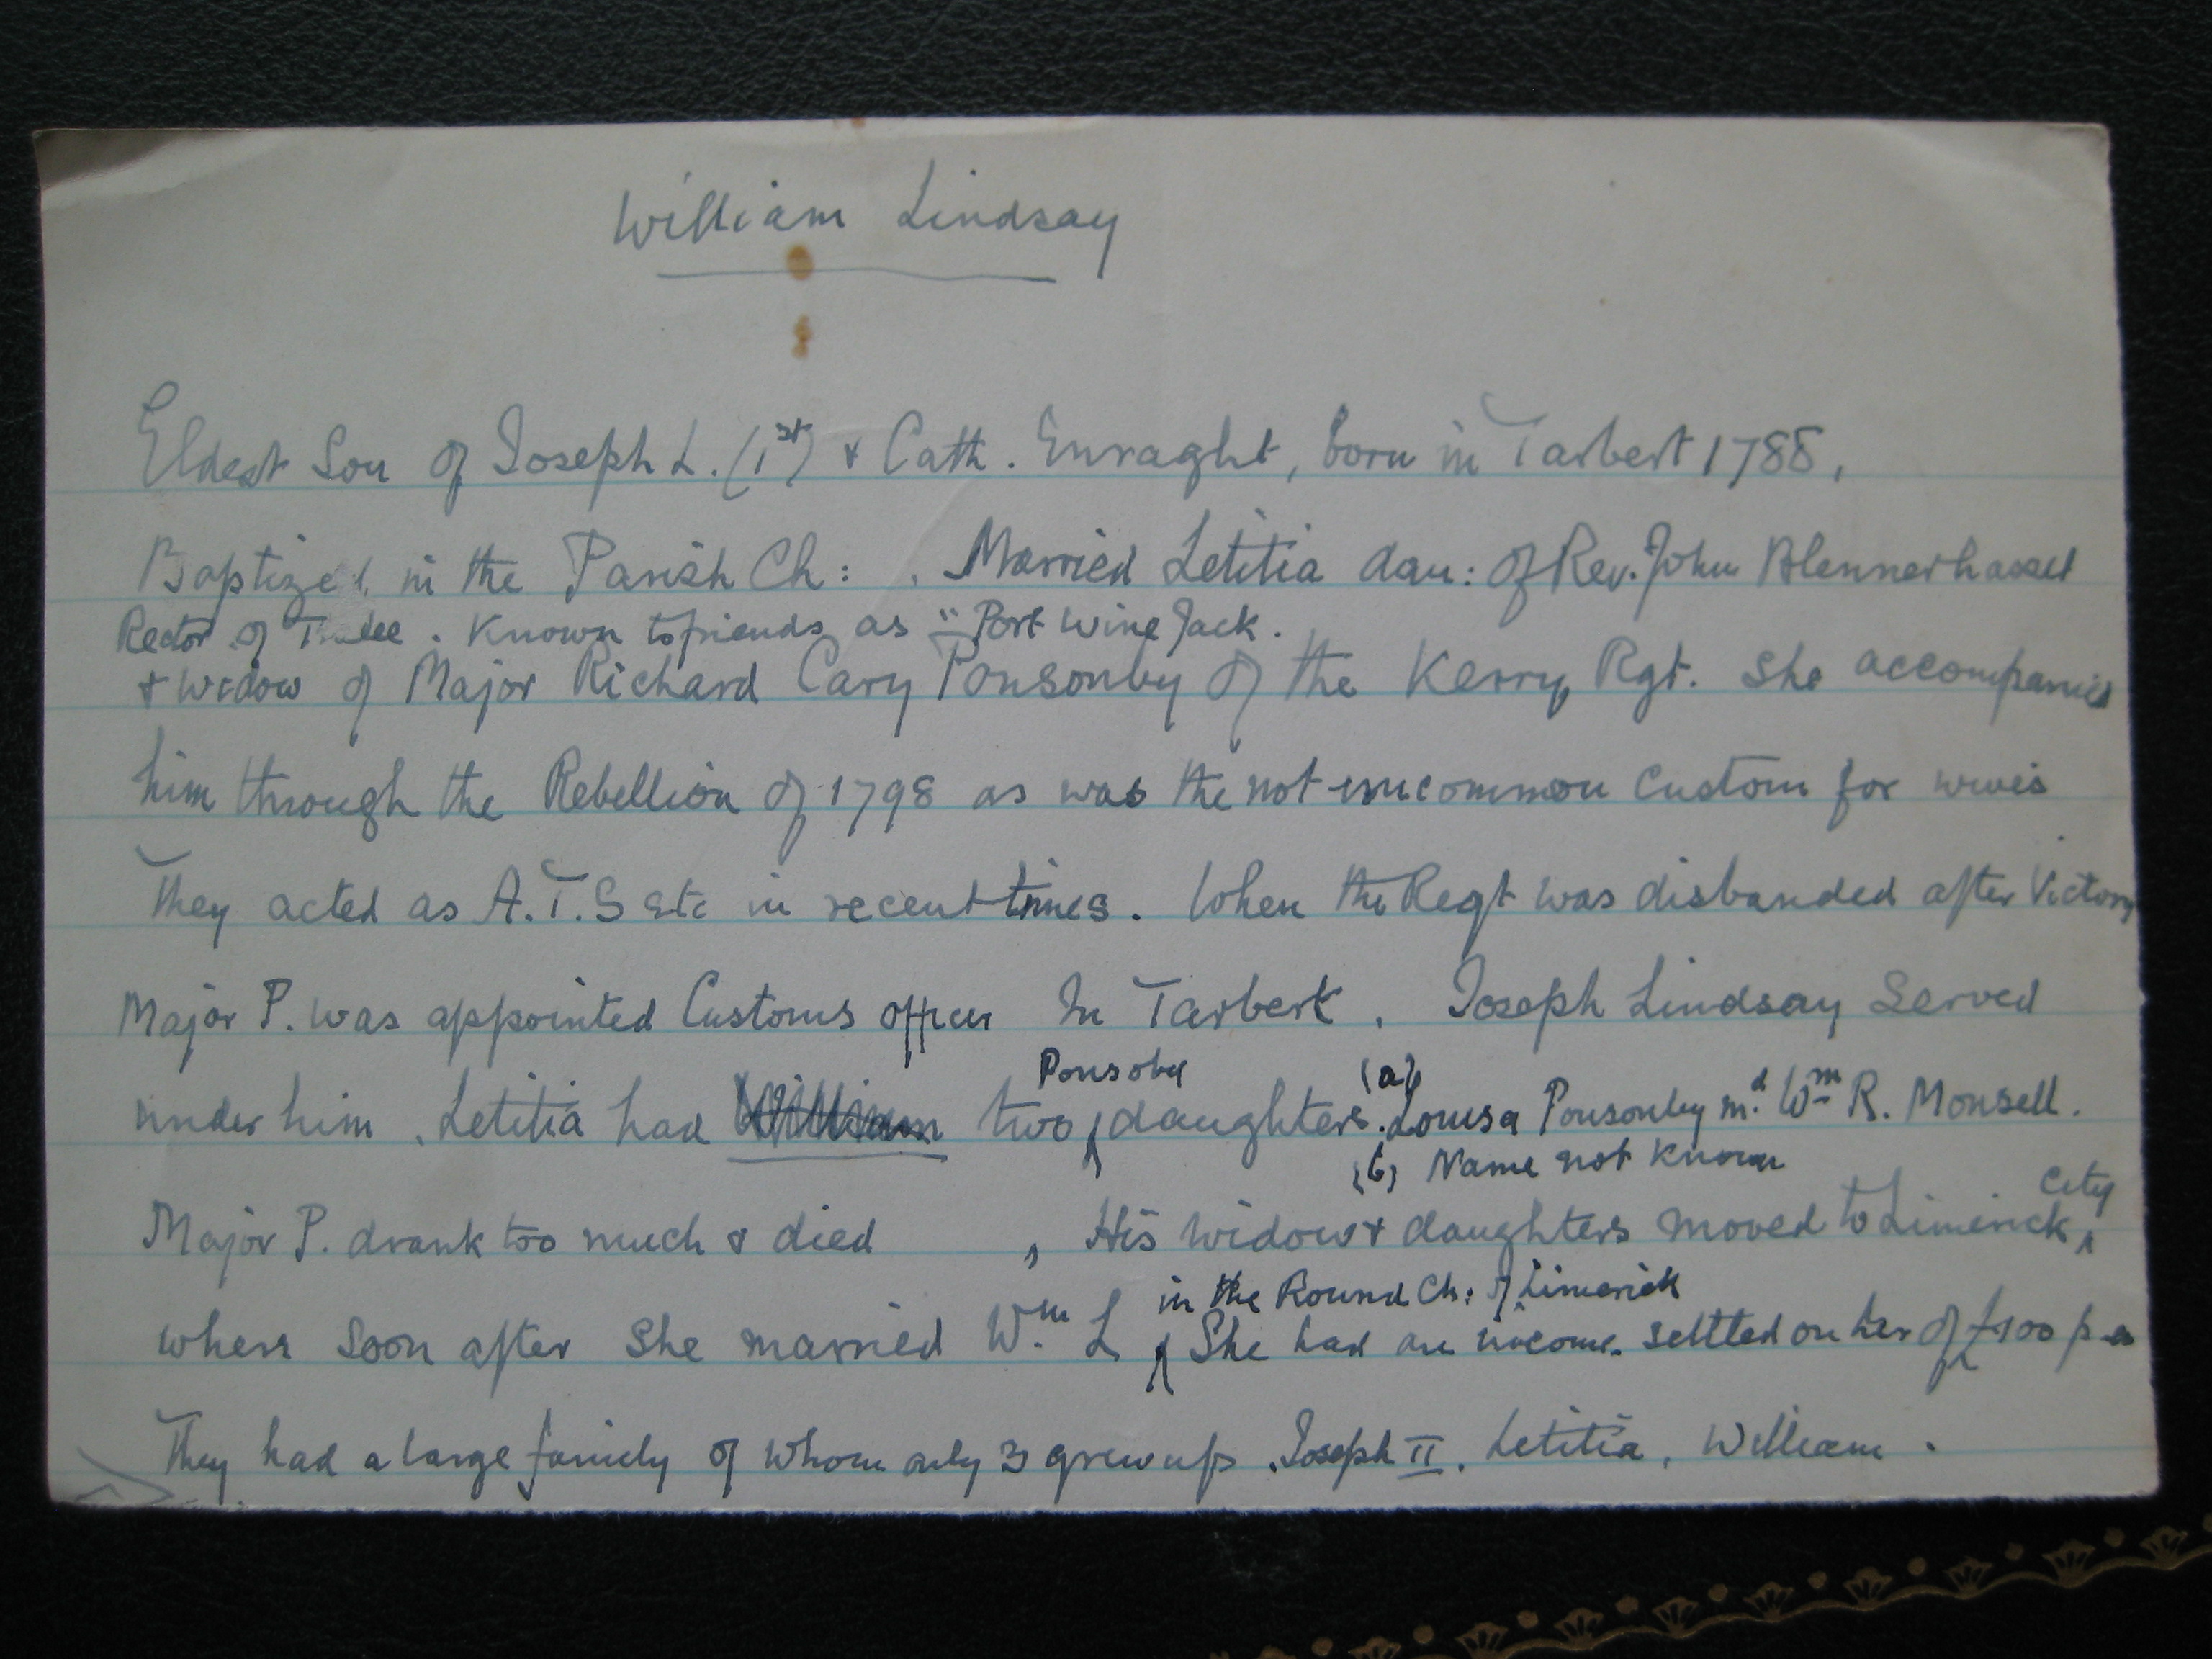 William Lindsay
Eldest Son of Joseph L. (1st) & Cath. Enraght, born in Tarbert 1788,
Baptized in the Parish Ch: . Married Letitia dau: of Rev. John Blennerhasset
Rector of Tralee. Known to friends as "Port Wine Jack.
& widow of Major Richard Cary Ponsonby of the Kerry Rgt. She accompanied
him through the Rebellion of 1798 as was the not uncommon custom for wives
They acted as A.T.S etc in recent times. When the Regt was disbanded after Victory
Major P. was appointed Customs officer In Tarbert. Joseph Lindsay Served
Ponsoby (a)
under him. Letitia had William two daughters. Louisa Ponsonby m.d Wm R. Monsell.
(b) Name not known
City
Major P. drank too much & died , His widow & daughters moved to Limerick
in the Round Ch: of Limerick
where soon after she married Wm. L She had an income settled on her of £100 p-a
They had a large family of whom only 3 grew up. Joseph II. Letitia, William.